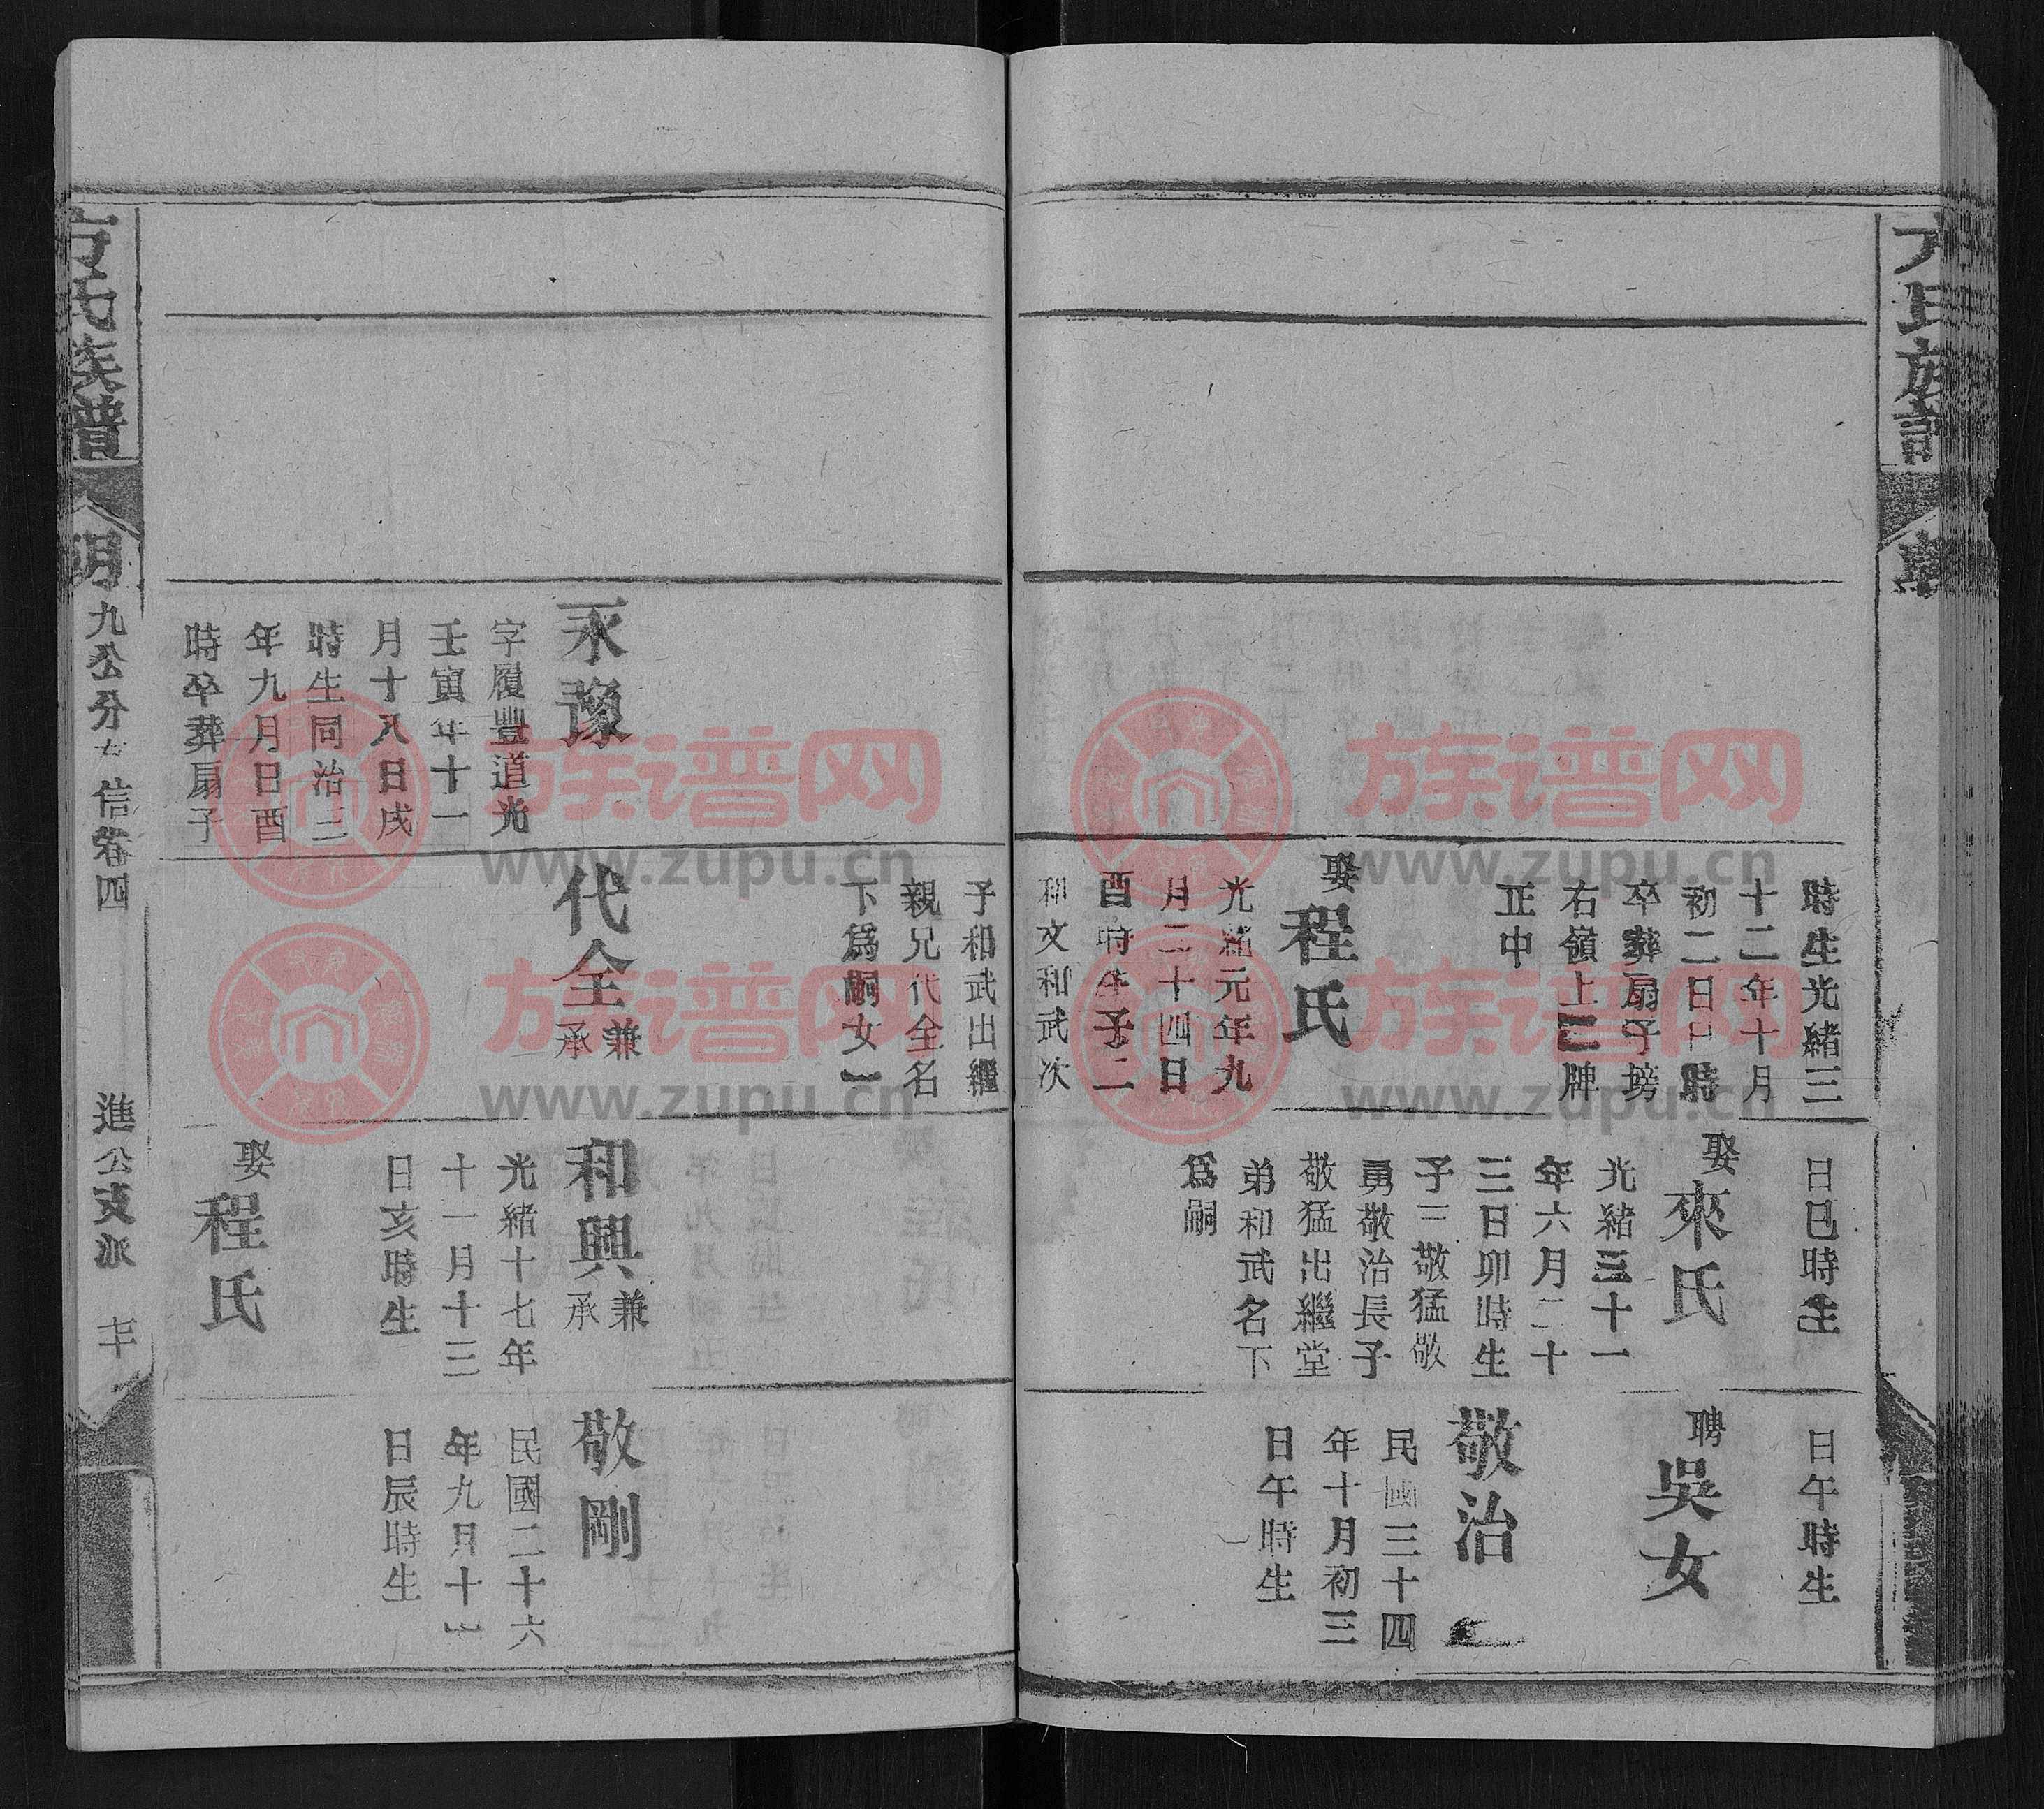 時生光緒三
十二年十月
初二日
時
卒葬扇子塝
右嶺上
牌
正中
娶程氏
光緒元年九
月二十四日
酉時生子二
和文和武次
子和武出繼
親兄代全名
下爲嗣女一
日巳時生
娶來氏
光緒三十一
年六月二十
三日卯時生
子三敬猛敬
勇敬治長子
敬猛出繼堂
弟和武名下
爲嗣
日午時生
聘吳女
敬治
民國三十四
年十月初三
日午時生
永豫
字履豐道光
壬寅年十一
月十八日戌
時生同治二
年九月日酉
時卒葬扇子
代全兼承
和興兼承
光緒十七年
十一月十三
日亥時生
娶程氏
敬剛
民國二十六
年九月十一
日辰時生
方氏族譜
九公分
信卷四
進公支派
族谱网
www.zupu.cn
族谱网
www.zupu.cn
族谱网
www.zupu.cn
族谱网
www.zupu.cn